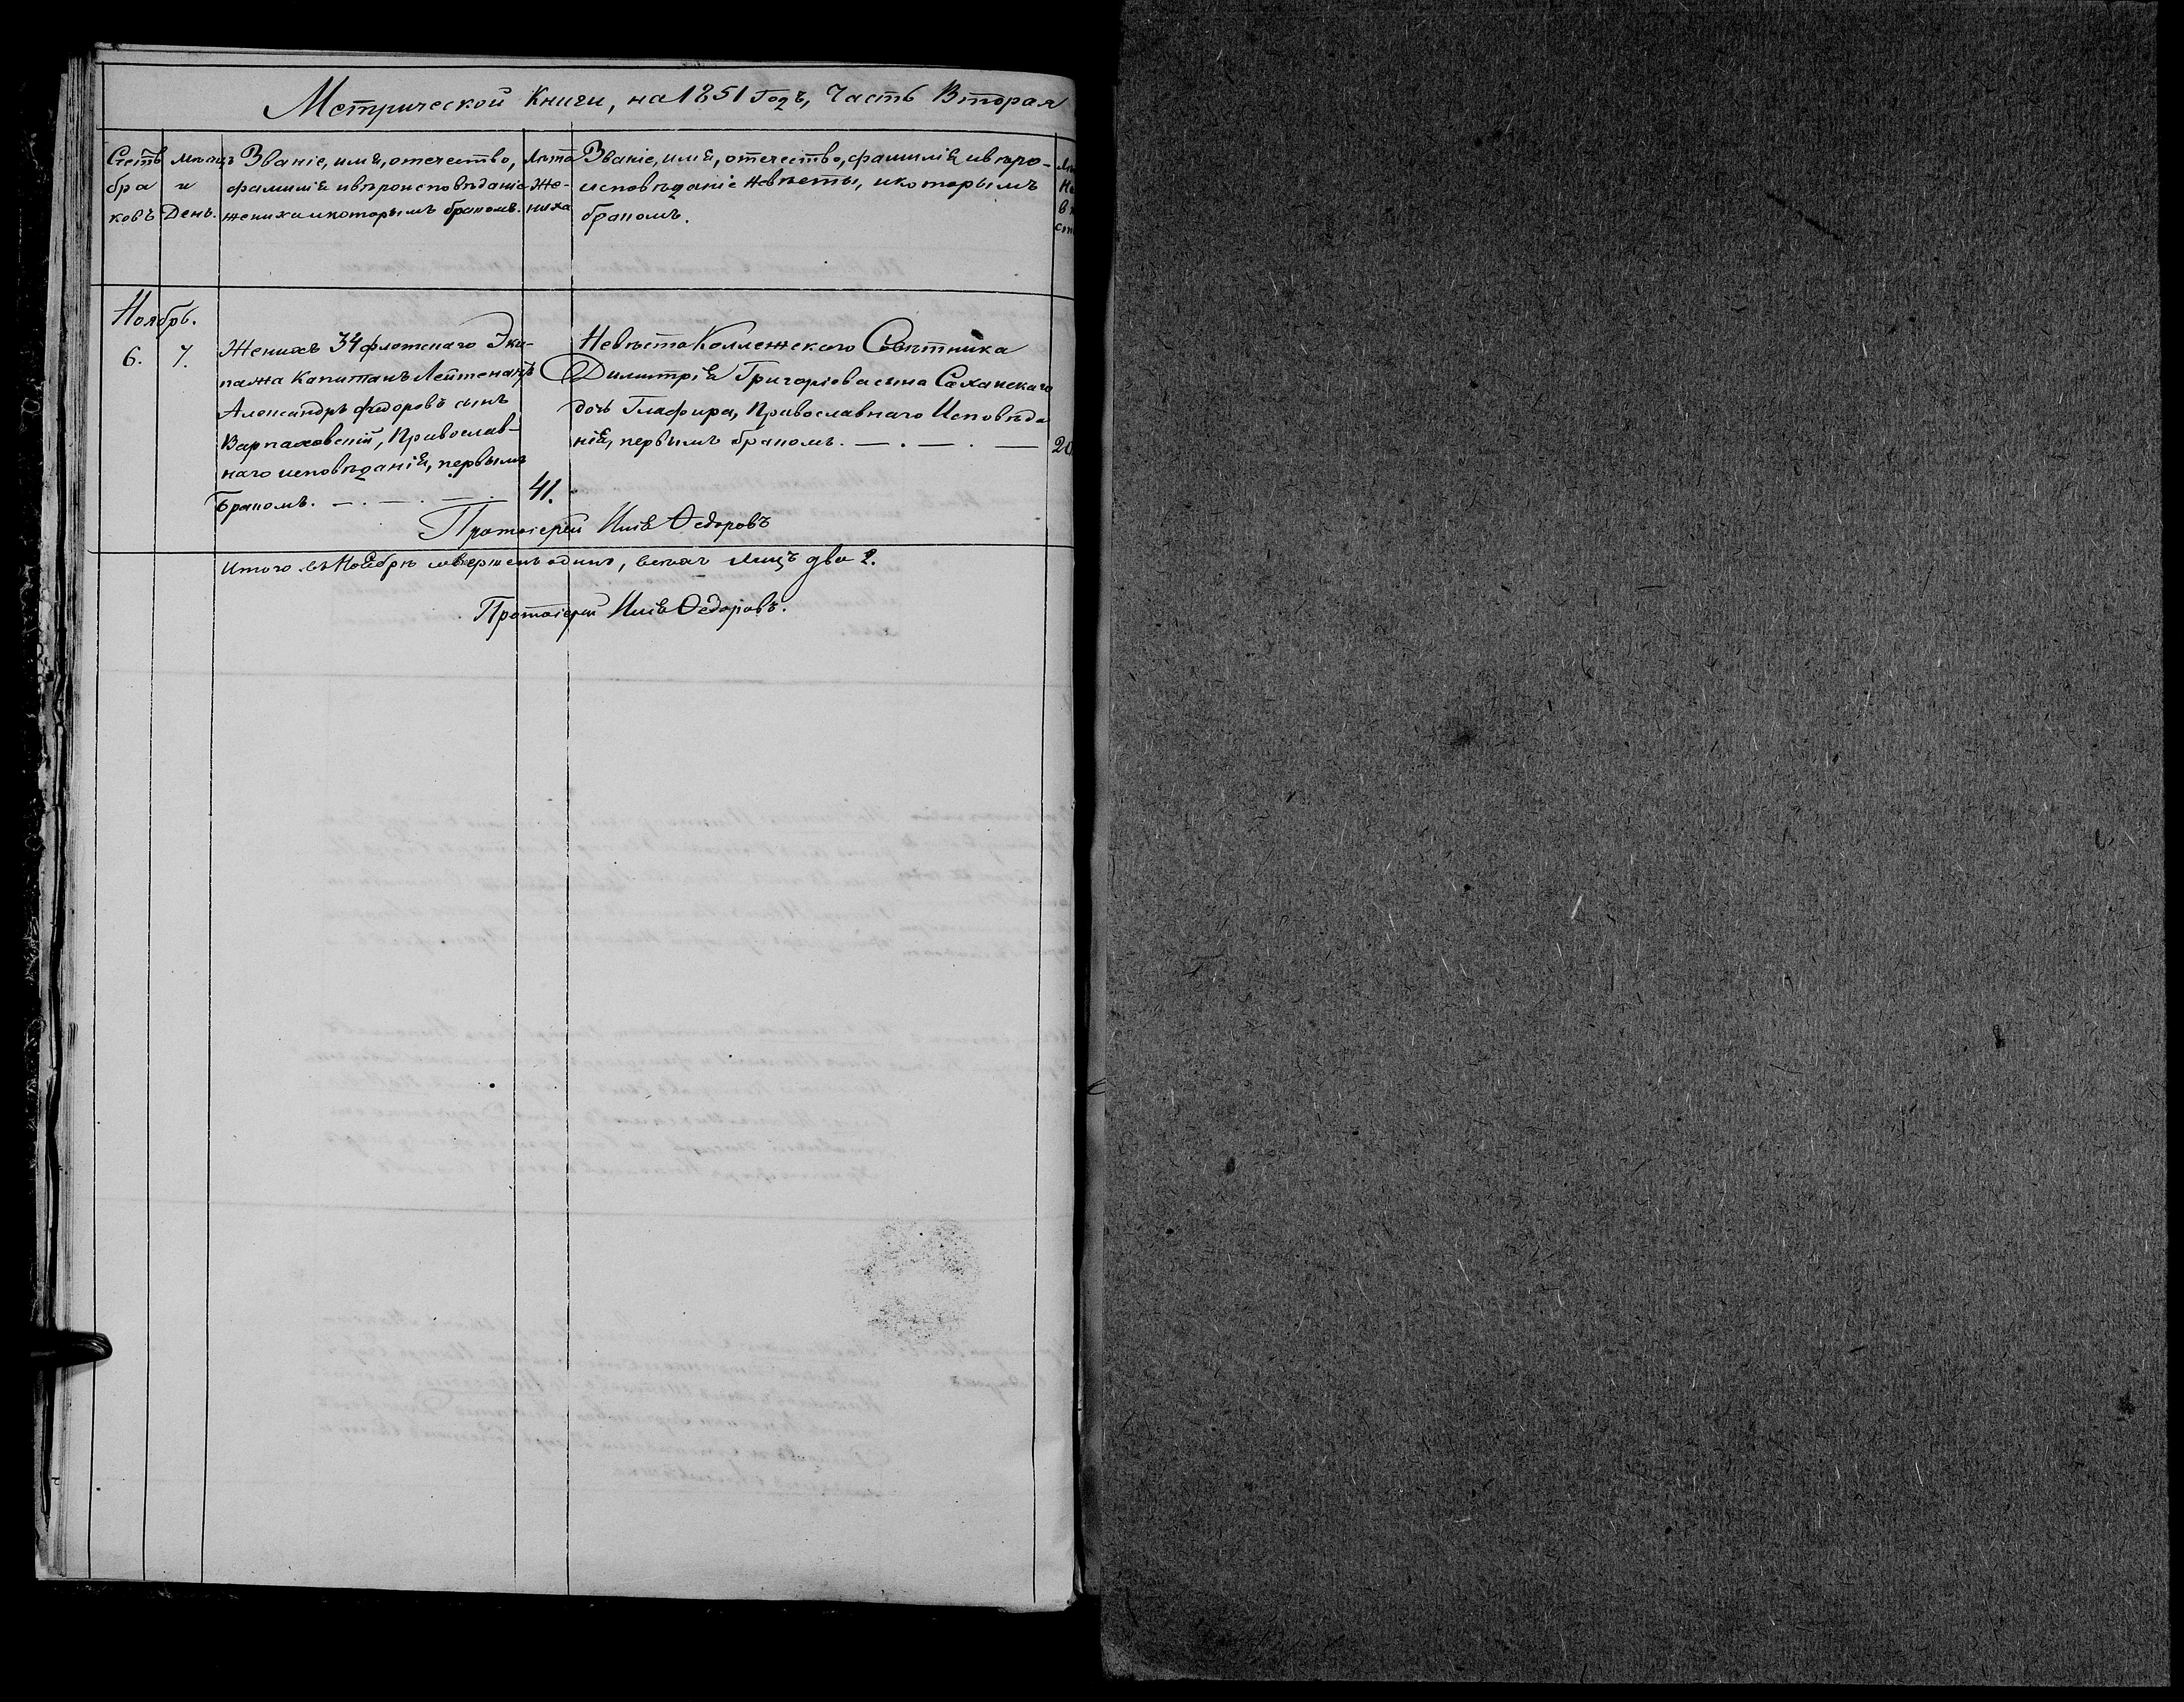 Метрической Книги, на 1851 Годъ, Часть Вторая
Счетъ бра ковъ
Мѣсяцъ и День.
Званіе, имя, отечество, фамилія и вѣроисповѣданіе жениха и которымъ бракомъ.
Лѣта Же-ниха
Званіе, имя, отечество, фамилія и вѣро-
исповѣданіе невѣсты, и которымъ
бракомъ.
Ноябрь.
6. 7.
Женихъ 34 флотскаго Эки-
пажа Капитанъ Лейтенантъ
Александръ Федоровъ сынъ
Варпаховскій, Православ-
наго исповѣданія, первымъ
Бракомъ. — . — . — . 41.
Невѣста Коллежскаго Совѣтника
Димитрія Григорьева сына Саханскаго
дочь Глафира, Православнаго Исповѣда
нія, первымъ бракомъ. — . — . — 20
Протоіерей Илія Ѳедоровъ
Итого въ Ноябрѣ совершенъ одинъ, лицъ два 2.
Протоіерей Илія Ѳедоровъ.